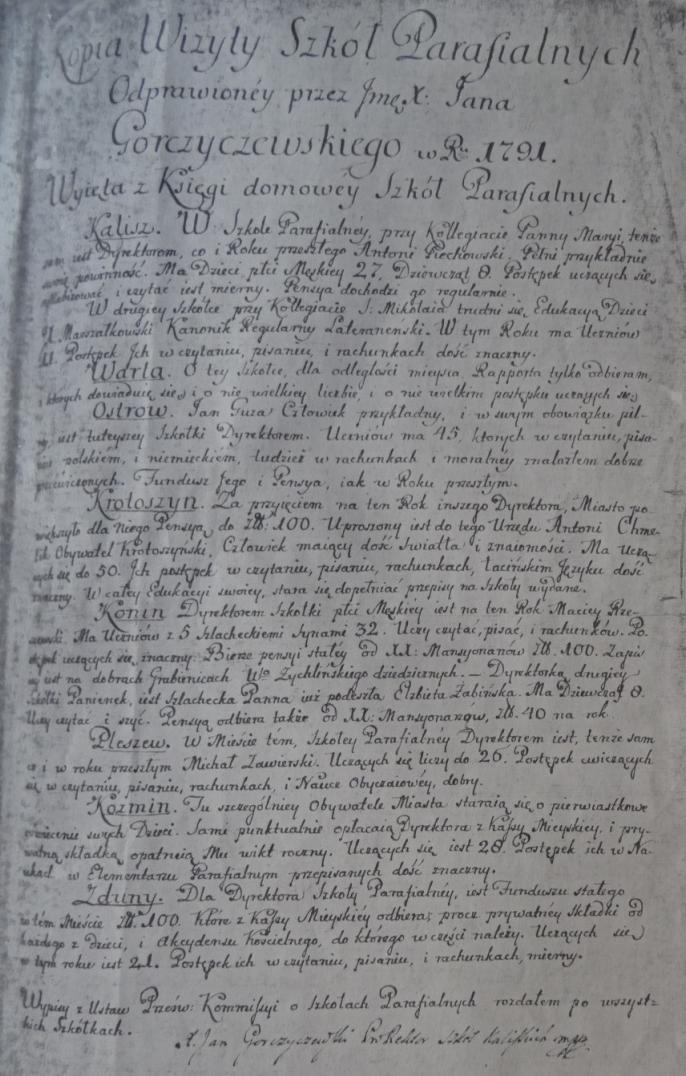 Kopia Wizyty Szkół Parafialnych
Odprawionéy przez Jmę X: Jana
Gorczyczewskiego w Ru 1791.
Wyięta z Księgi domowéy Szkół Parafialnych.
Kalisz. W Szkole Parafialnéy, przy Kollegiacie Panny Maryi, tenże
sam iest Dyrektorem, co i Roku przeszłego Antoni Piechowski. Pełni przykładnie
swoię powinność. Ma Dzieci, płci Męskiey 27, Dziewcząt 8. Postępek uczących się
syllabizować, i czytać iest mierny. Pensya dochodzi go regularnie.
W drugiey Szkółce przy Kollegiacie S: Mikołaia trudni się Edukacyą Dzieci
X. Marszałkowski Kanonik Regularny Lateranenski. W tym Roku ma Uczniów
Postępek Ich w czytaniu, pisaniu, i rachunkach dość znaczny.
Wdrta. O tey Szkołce, dla odległości mieysca, Rapporta tylko odbieram,
z ktorych dowiaduię się, i o nie wielkiey liczbie, i o nie wielkim postępku uczących się.
Ostrow. Jan Guza Człowiek przykładny, i w swym obowiązku pil-
ny, iest tuteyszey Szkołki Dyrektorem. Uczniów ma 45, ktorych w czytaniu, pisa-
niu polskiém, i niemieckiém, tudzież w rachunkach i moralnéy znalazłem dobrze
przećwiczonych. Fundusz Jego i Pensya, iak w Roku przeszłym.
Krotoszyn. Za przyięciem na ten Rok inszego Dyrektora, Miasto po-
większyło dla niego Pensyą do Zł: 100. Uproszony iest do tego Urzędu Antoni Chme-
lik Obywatel Krotoszyński, Człowiek maiący dość światła i znaiomości. Ma Uczą-
cych się do 50. Ich postępek w czytaniu, pisaniu, rachunkach, Łacińskim Języku dość
znaczny. W całey Edukacyi swoiey, stara się dopełniać przepisy na Szkoły wydane.
Konin Dyrektorem Szkołki płci Męskiey iest na ten Rok Maciey Rze-
Ma Uczniów z 5 Szlacheckiemi Synami 32. Uczy czytać, pisać, i rachunków. Po-
stępek uczących się, znaczny. Bierze pensyi stałey od XX: Mansyonarzów Zł: 100. Zapis
iest na dobrach Grabienicach Żychlińskiego dziedzicznych. – Dyrektorką drugiey
Szkółki Panienek, iest Szlachecka Panna iuż podeszła Elzbieta Zabińska. Ma Dziewcząt 8.
Uczy czytać i szyć. Pensyą odbiera także od XX: Mansyonarzów, Zł: 40 na rok.
Pleszew. W Mieście tém, Szkoley Parafialnéy Dyrektorem iest, tenże sam
co i w roku przeszłym Michał Zawierski. Uczących się liczy do 26. Postępek cwiczących
się w czytaniu, pisaniu, rachunkach, i Nauce Obyczaiowéy, dobry.
Kozmin. Tu szczególniey Obywatele Miasta staraią się o pierwiastkowe
oświecenie swych Dzieci. Sami punktualnie opłacaią Dyrektora z Kassy Mieyskiey, i pry-
watną składką opatruią Mu wikt roczny. Uczących się iest 28. Postępek ich w Na-
ukach w Elementarzu Parafialnym przepisanych dość znaczny.
Zduny. Dla Dyrektora Szkoły Parafialnéy, iest Funduszu stałego
w tém Mieście Zł: 100. Które z Kassy Mieyskiey odbiera; procz prywatnéy składki od
każdego z Dzieci, i akcydensu Kościelnego, do którego w części należy. Uczących się
w tym roku iest 21. Postępek ich w czytaniu, pisaniu, i rachunkach, mierny.
Wypisy z Ustaw Prześw: Kommissyi o Szkołach Parafialnych rozdałem po wszyst-
kich Szkółkach.
X. Jan Gorczyczewski ProRektor Szkół Kaliskich mpp